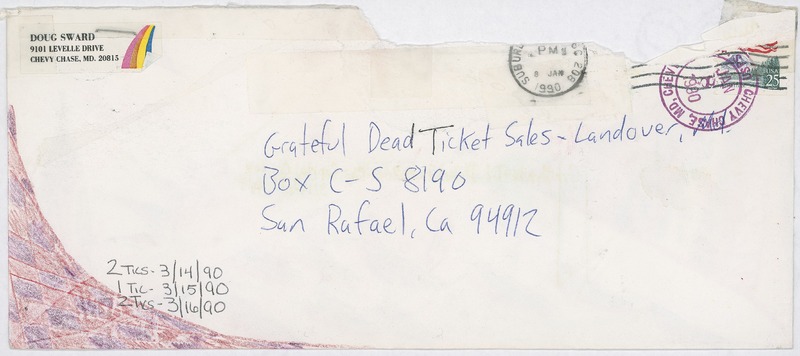 DOUG SWARD
9101 LEVELLE DRIVE
CHEVY CHASE, MD. 20815
PM
8 JAN
1990
208
25
CHEVY CHASE, MD
JAN
Grateful Dead Ticket Sales - Landover,
Box C-S 8190
San Rafael, Ca 94912
2 Tics - 3/14/90
1 Tic - 3/15/90
2 Tics - 3/16/90